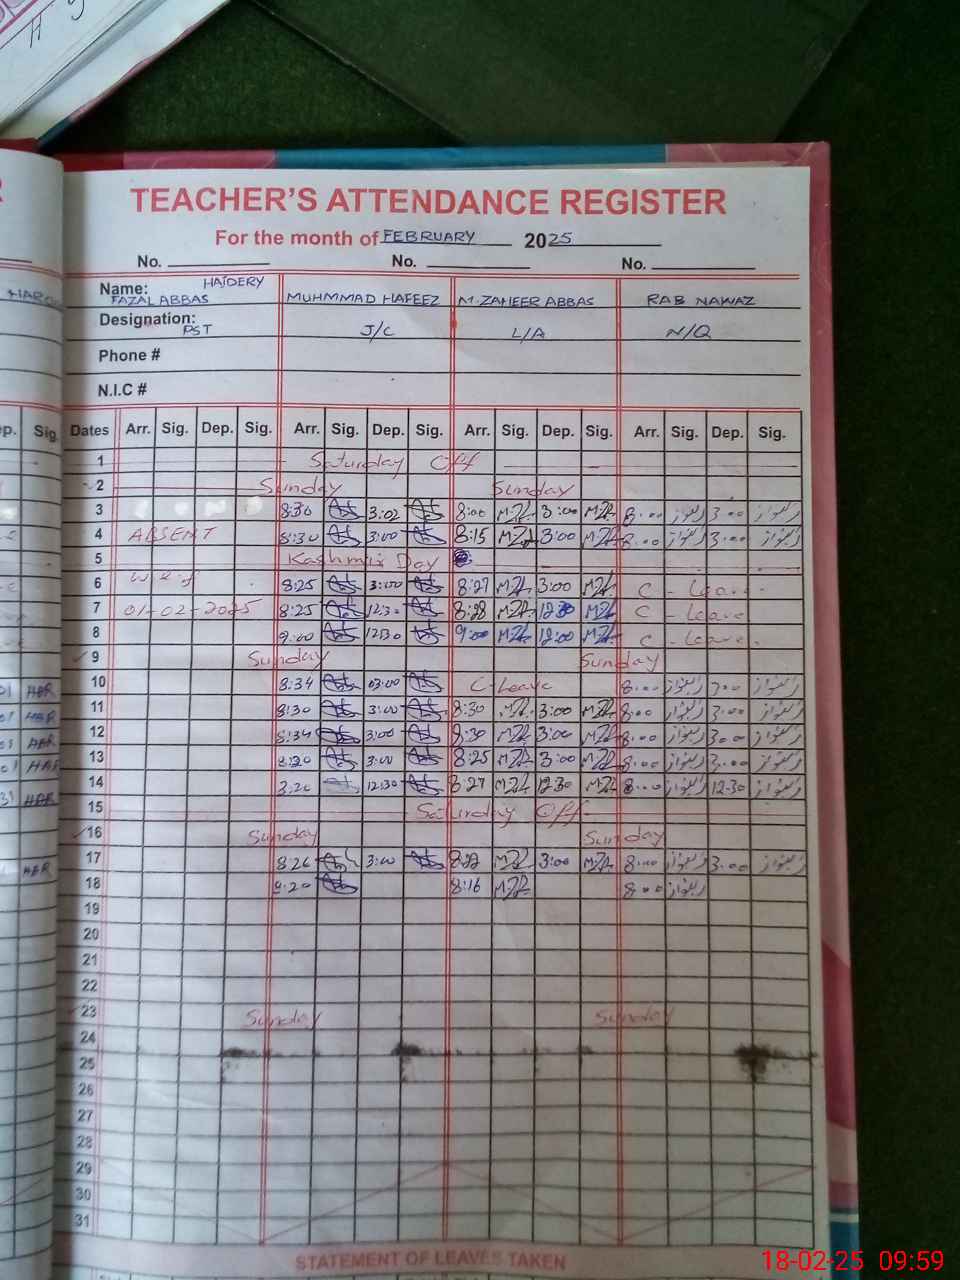 TEACHER'S ATTENDANCE REGISTER
For the month of FEBRUARY 2025
No. No. No.
Name: FAZAL ABBAS HAIDERY MUHMMAD HAFEEZ M.ZAHEER ABBAS RAB NAWAZ
Designation: PST J/C L/A N/Q
Phone #
N.I.C #
Sig. Dates Arr. Sig. Dep. Sig. Arr. Sig. Dep. Sig. Arr. Sig. Dep. Sig. Arr. Sig. Dep. Sig.
1 Saturday Off
2 Sunday Sunday
3 8:30 3:02 8:00 MZA 3:00 MZA 8:00 ربنواز 3:00 ربنواز
4 ABSENT 8:30 3:00 8:15 MZA 3:00 MZA 8:00 ربنواز 3:00 ربنواز
5 Kashmir Day
6 w e f 8:25 3:00 8:27 MZA 3:00 MZA C - Leave
7 01-02-2025 8:25 12:30 8:28 MZA 12:30 MZA C - Leave
8 9:00 12:30 9:00 MZA 12:00 MZA C - Leave
9 Sunday Sunday
HBR 10 8:34 03:00 C-Leave 8:00 ربنواز ربنواز
HBR 11 8:30 3:00 8:30 MZA 3:00 MZA 8:00 ربنواز 3:00 ربنواز
HBR 12 8:34 3:00 8:30 MZA 3:00 MZA 8:00 ربنواز 3:00 ربنواز
HBR 13 8:20 3:00 8:25 MZA 3:00 MZA 8:00 ربنواز 3:00 ربنواز
HBR 14 12:30 8:27 MZA 12:30 MZA 8:00 ربنواز 12:30 ربنواز
15 Saturday Off
16 Sunday Sunday
HBR 17 8:26 3:00 8:22 MZA 3:00 MZA 8:00 ربنواز 3:00 ربنواز
18 8:20 8:16 MZA 8:00 ربنواز
19
20
21
22
23 Sunday Sunday
24
25
26
27
28
29
30
31
STATEMENT OF LEAVES TAKEN
18-02-25 09:59